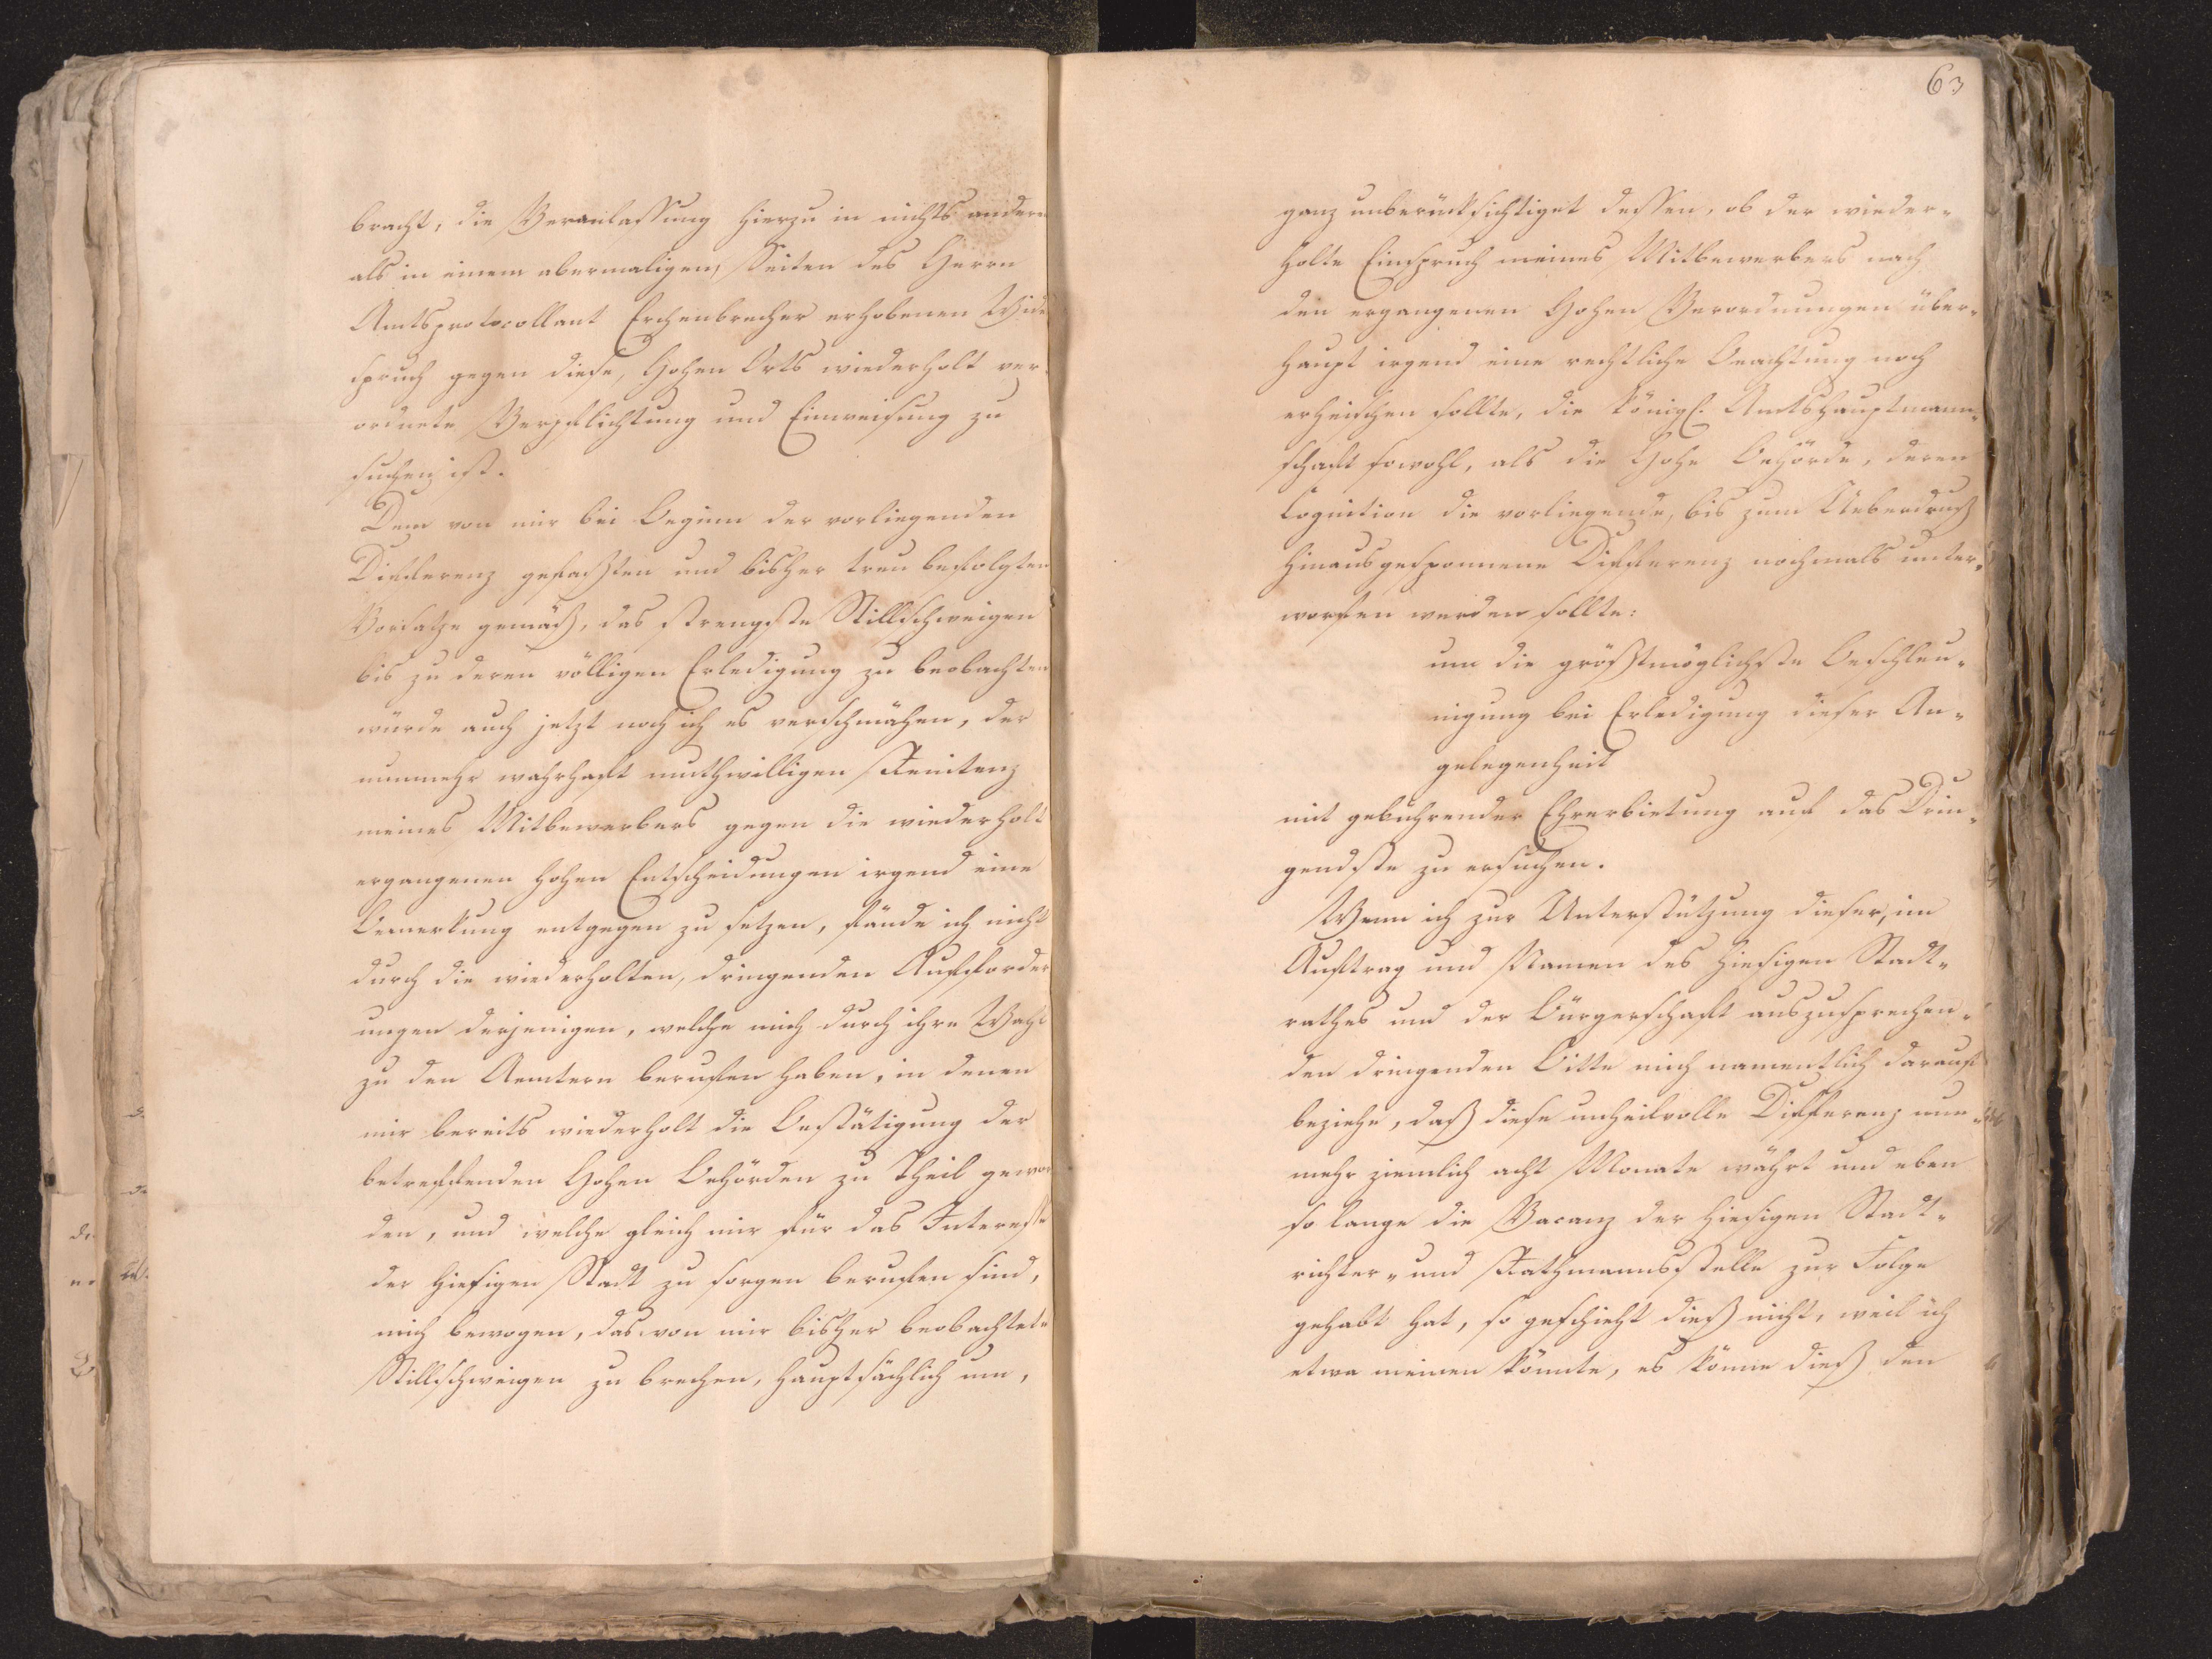 bracht, die Veranlassung hierzu in nichts anderem
als in einem abermaligen, Seiten des Herrn
Amtsprotocollant Erchenbrecher erhobenen Wider
spruch gegen diese, Hohen Orts wiederholt ver-
ordnete Verpflichtung und Einweisung zu
suchen ist.
Dem von mir bei Beginn der vorliegenden
Differenz gefaßten und bisher treu befolgten
Vorsatze gemäß, das strengste Stillschweigen
bis zu deren völligen Erledigung zu beobachten
würde auch jetzt noch ich es verschmähen, der
nunmehr wahrhaft muthwilligen Renitenz
meines Mitbewerbers gegen die wiederholt
ergangenen hohen Entscheidungen irgend eine
Bemerkung entgegen zu setzen, fände ich nicht
durch die wiederholten, dringenden Aufforder
ungen derjenigen, welche mich durch ihre Wahl
zu den Aemtern berufen haben, in denen
mir bereits wiederholt die Bestätigung der
betreffenden Hohen Behörden zu Theil gewor
den, und welche gleich mir für das Interesse
der hiesigen Stadt zu sorgen berufen sind,
mich bewogen, das von mir bisher beobachtete
Stillschweigen zu brechen, hauptsächlich um,
63
ganz unberücksichtiget dessen, ob der wieder-
holte Einspruch meines Mitbewerbers nach
den ergangenen Hohen Verordnungen über-
haupt irgend eine rechtliche Beachtung noch
erheischen sollte, die Königl. Amtshauptmann-
schaft sowohl, als die Hohe Behörde, deren
Cognition die vorliegende, bis zum Ueberdruß
hinausgesponnene Differenz nochmals unter-
worfen werden sollte:
um die größtmöglichste Beschleu-
nigung bei Erledigung dieser An-
gelegenheit
mit gebührender Ehrerbietung auf das Drin-
gendste zu ersuchen.
Wenn ich zur Unterstützung dieser, im
Auftrag und Namen des hiesigen Stadt-
rathes und der Bürgerschaft auszusprechen-
den dringenden Bitte mich namentlich darauf
beziehe, daß diese unheilvolle Differenz nun-
mehr ziemlich acht Monate währt und eben
so lange die Vacanz der hiesigen Stadt-
richter- und Rathmannsstelle zur Folge
gehabt hat, so geschieht dieß nicht, weil ich
etwa meinen könnte, es könne dieß den